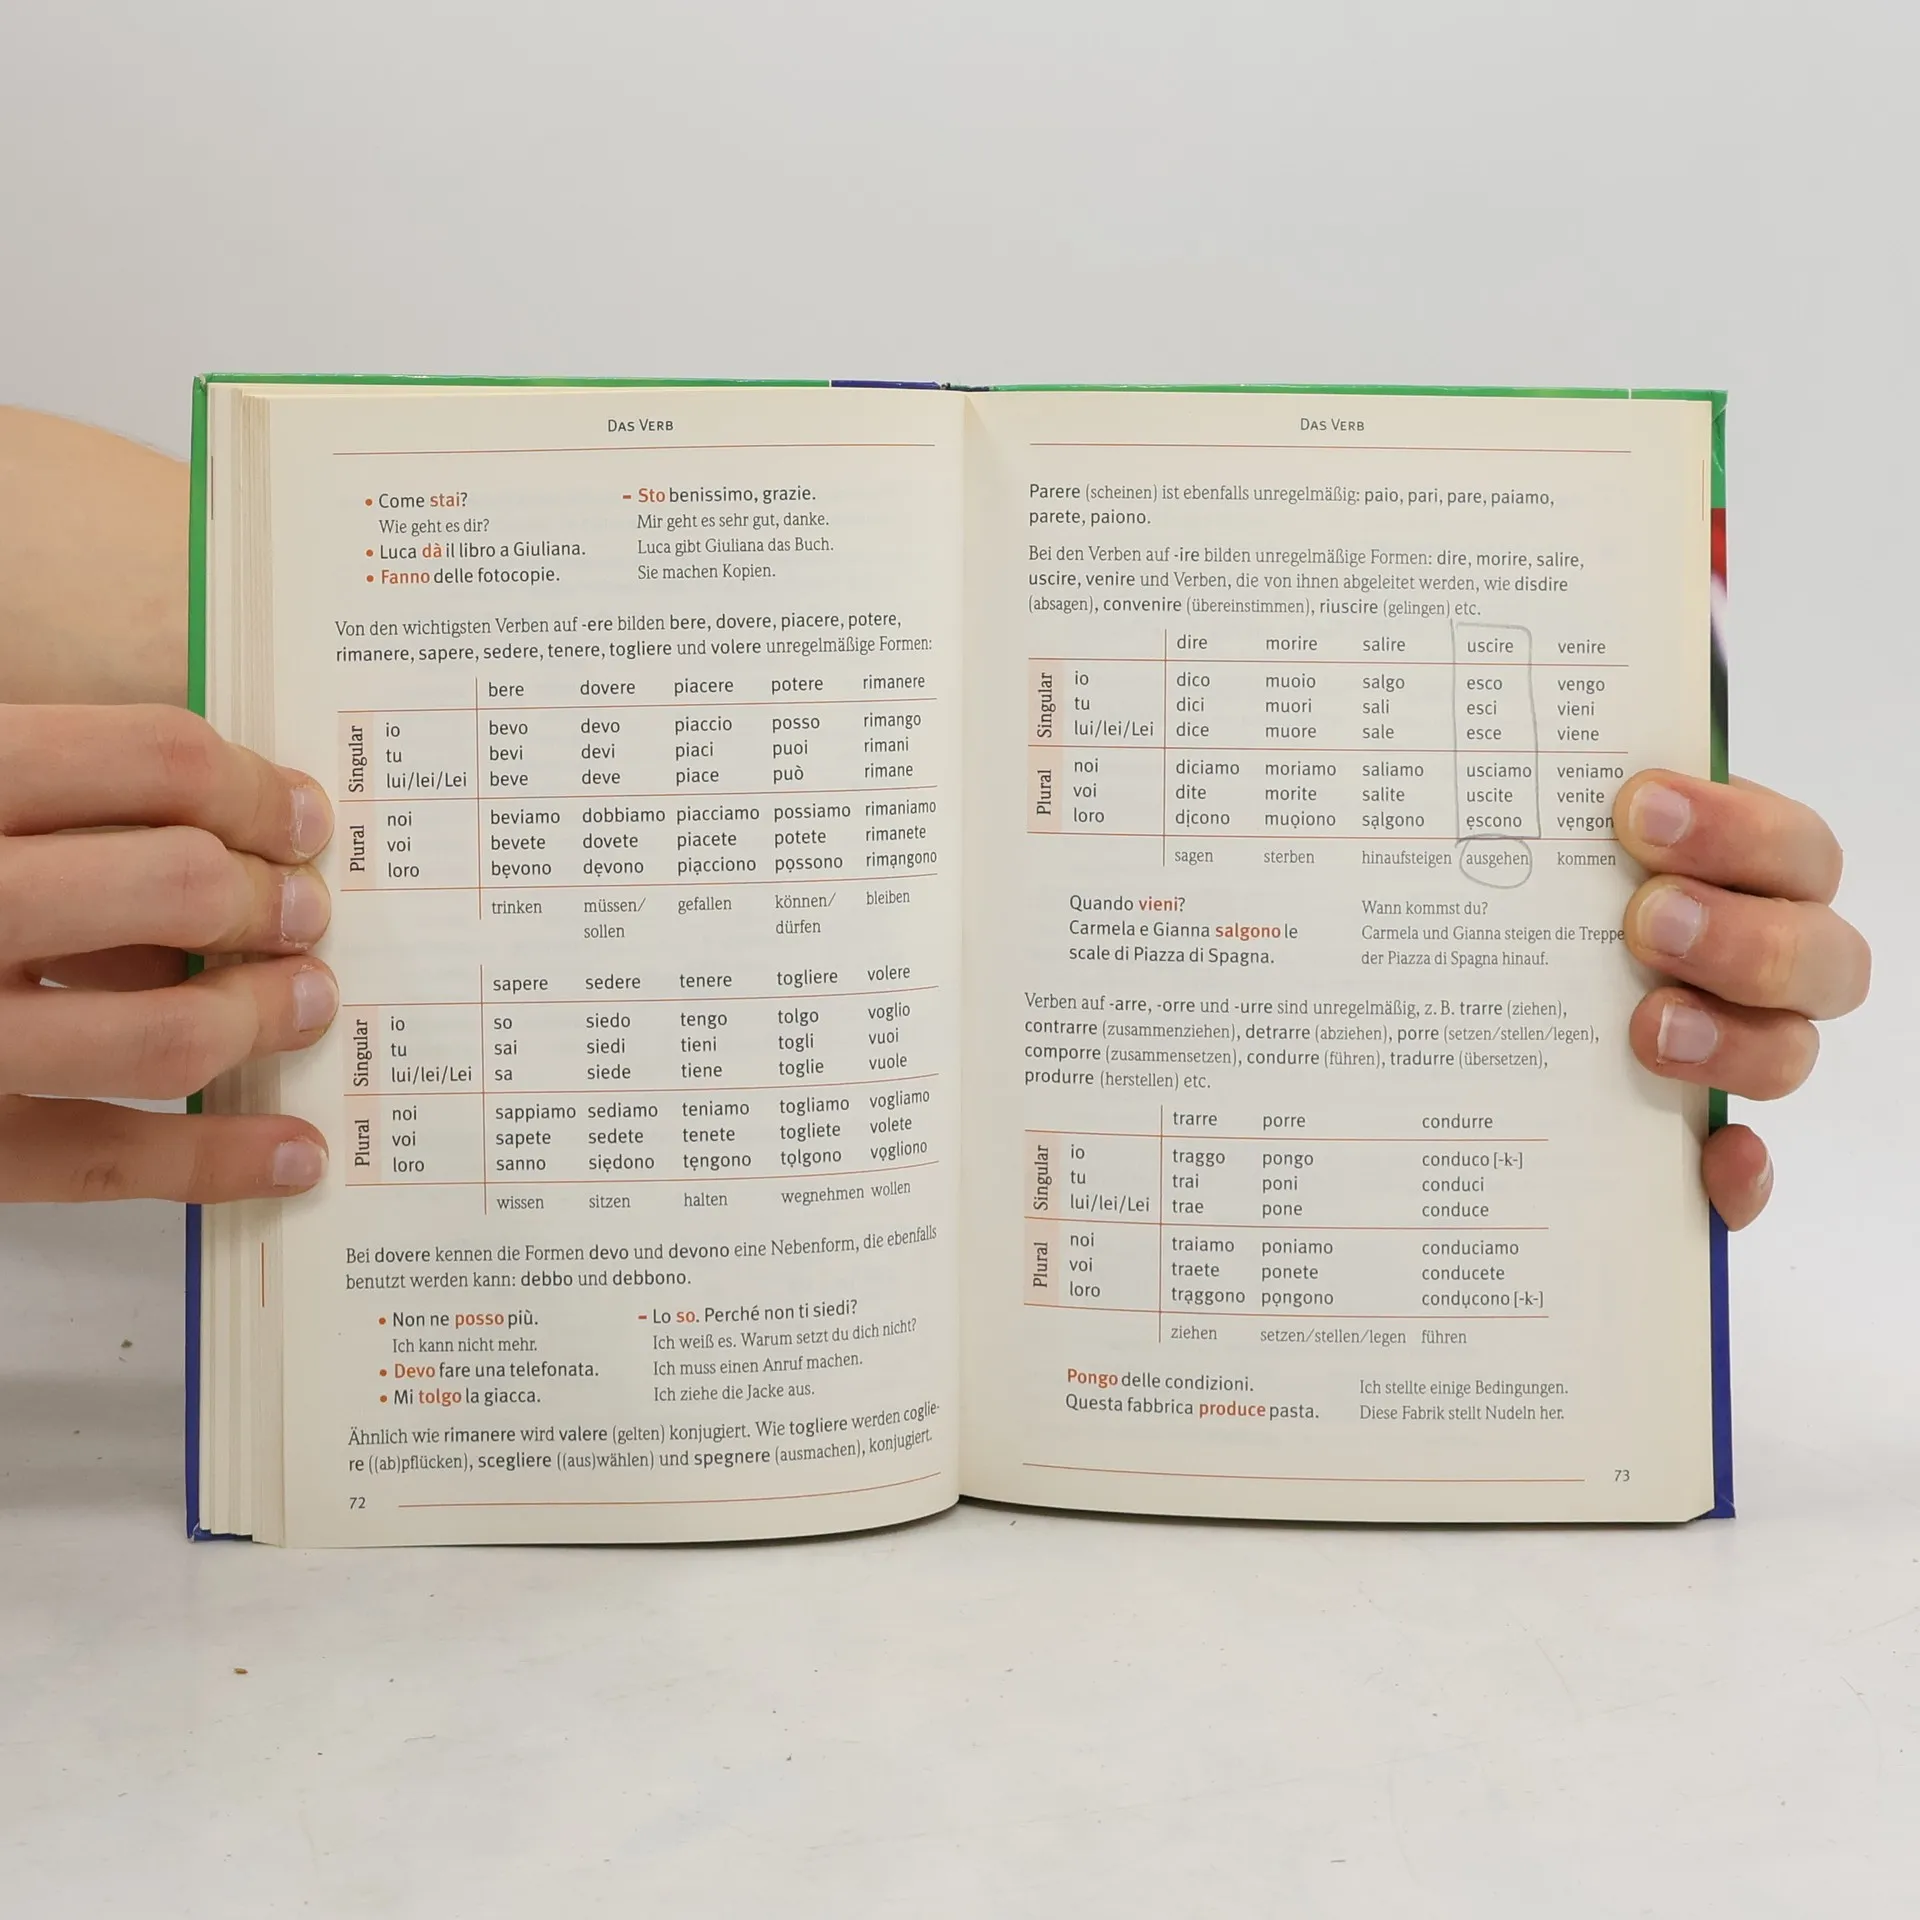 DAS VERB
• Come stai?
Wie geht es dir?
• Luca dà il libro a Giuliana.
• Fanno delle fotocopie.
– Sto benissimo, grazie.
Mir geht es sehr gut, danke.
Luca gibt Giuliana das Buch.
Sie machen Kopien.
Von den wichtigsten Verben auf -ere bilden bere, dovere, piacere, potere,
rimanere, sapere, sedere, tenere, togliere und volere unregelmäßige Formen:
bere dovere piacere potere rimanere
Singular
io bevo devo piaccio posso rimango
tu bevi devi piaci puoi rimani
lui/lei/Lei beve deve piace può rimane
Plural
noi beviamo dobbiamo piacciamo possiamo rimaniamo
voi bevete dovete piacete potete rimanete
loro bẹvono dẹvono piạcciono pọssono rimạngono
trinken müssen/ gefallen können/ bleiben
sollen dürfen
sapere sedere tenere togliere volere
Singular
io so siedo tengo tolgo voglio
tu sai siedi tieni togli vuoi
lui/lei/Lei sa siede tiene toglie vuole
Plural
noi sappiamo sediamo teniamo togliamo vogliamo
voi sapete sedete tenete togliete volete
loro sanno siẹdono tẹngono tọlgono vọgliono
wissen sitzen halten wegnehmen wollen
Bei dovere kennen die Formen devo und devono eine Nebenform, die ebenfalls
benutzt werden kann: debbo und debbono.
• Non ne posso più.
Ich kann nicht mehr.
• Devo fare una telefonata.
• Mi tolgo la giacca.
– Lo so. Perché non ti siedi?
Ich weiß es. Warum setzt du dich nicht?
Ich muss einen Anruf machen.
Ich ziehe die Jacke aus.
Ähnlich wie rimanere wird valere (gelten) konjugiert. Wie togliere werden coglie-
re ((ab)pflücken), scegliere ((aus)wählen) und spegnere (ausmachen), konjugiert.
72
DAS VERB
Parere (scheinen) ist ebenfalls unregelmäßig: paio, pari, pare, paiamo,
parete, paiono.
Bei den Verben auf -ire bilden unregelmäßige Formen: dire, morire, salire,
uscire, venire und Verben, die von ihnen abgeleitet werden, wie disdire
(absagen), convenire (übereinstimmen), riuscire (gelingen) etc.
dire morire salire uscire venire
Singular
io dico muoio salgo esco vengo
tu dici muori sali esci vieni
lui/lei/Lei dice muore sale esce viene
Plural
noi diciamo moriamo saliamo usciamo veniamo
voi dite morite salite uscite venite
loro dịcono muọiono sạlgono ẹscono vẹngon
sagen sterben hinaufsteigen ausgehen kommen
Quando vieni?
Carmela e Gianna salgono le
scale di Piazza di Spagna.
Wann kommst du?
Carmela und Gianna steigen die Treppe
der Piazza di Spagna hinauf.
Verben auf -arre, -orre und -urre sind unregelmäßig, z. B. trarre (ziehen),
contrarre (zusammenziehen), detrarre (abziehen), porre (setzen/stellen/legen),
comporre (zusammensetzen), condurre (führen), tradurre (übersetzen),
produrre (herstellen) etc.
trarre porre condurre
Singular
io traggo pongo conduco [-k-]
tu trai poni conduci
lui/lei/Lei trae pone conduce
Plural
noi traiamo poniamo conduciamo
voi traete ponete conducete
loro trạggono pọngono condụcono [-k-]
ziehen setzen/stellen/legen führen
Pongo delle condizioni.
Questa fabbrica produce pasta.
Ich stellte einige Bedingungen.
Diese Fabrik stellt Nudeln her.
73